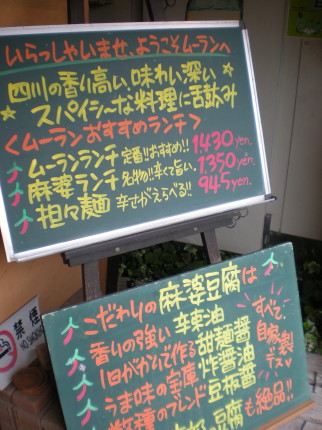 いらっしゃいませ、ようこそムーランへ
四川の香り高い味わい深い
スパイシ〜な料理に舌鼓み
<ムーランおすすめランチ>
ムーランランチ 定番!!おすすめ!! 1,430yen.
麻婆ランチ 名物!!辛て旨い。 1,350yen.
担々麺 辛さがえらべる!! 945yen.
こだわりの麻婆豆腐は
香りの強い辛東油
1日がかりで作る甜麺醤
うま味の宝庫 炸醤油
数種のブレンド豆板醤
豆腐も絶品!!
すべて、
自家製
デス♥
禁煙
NO SMOKING